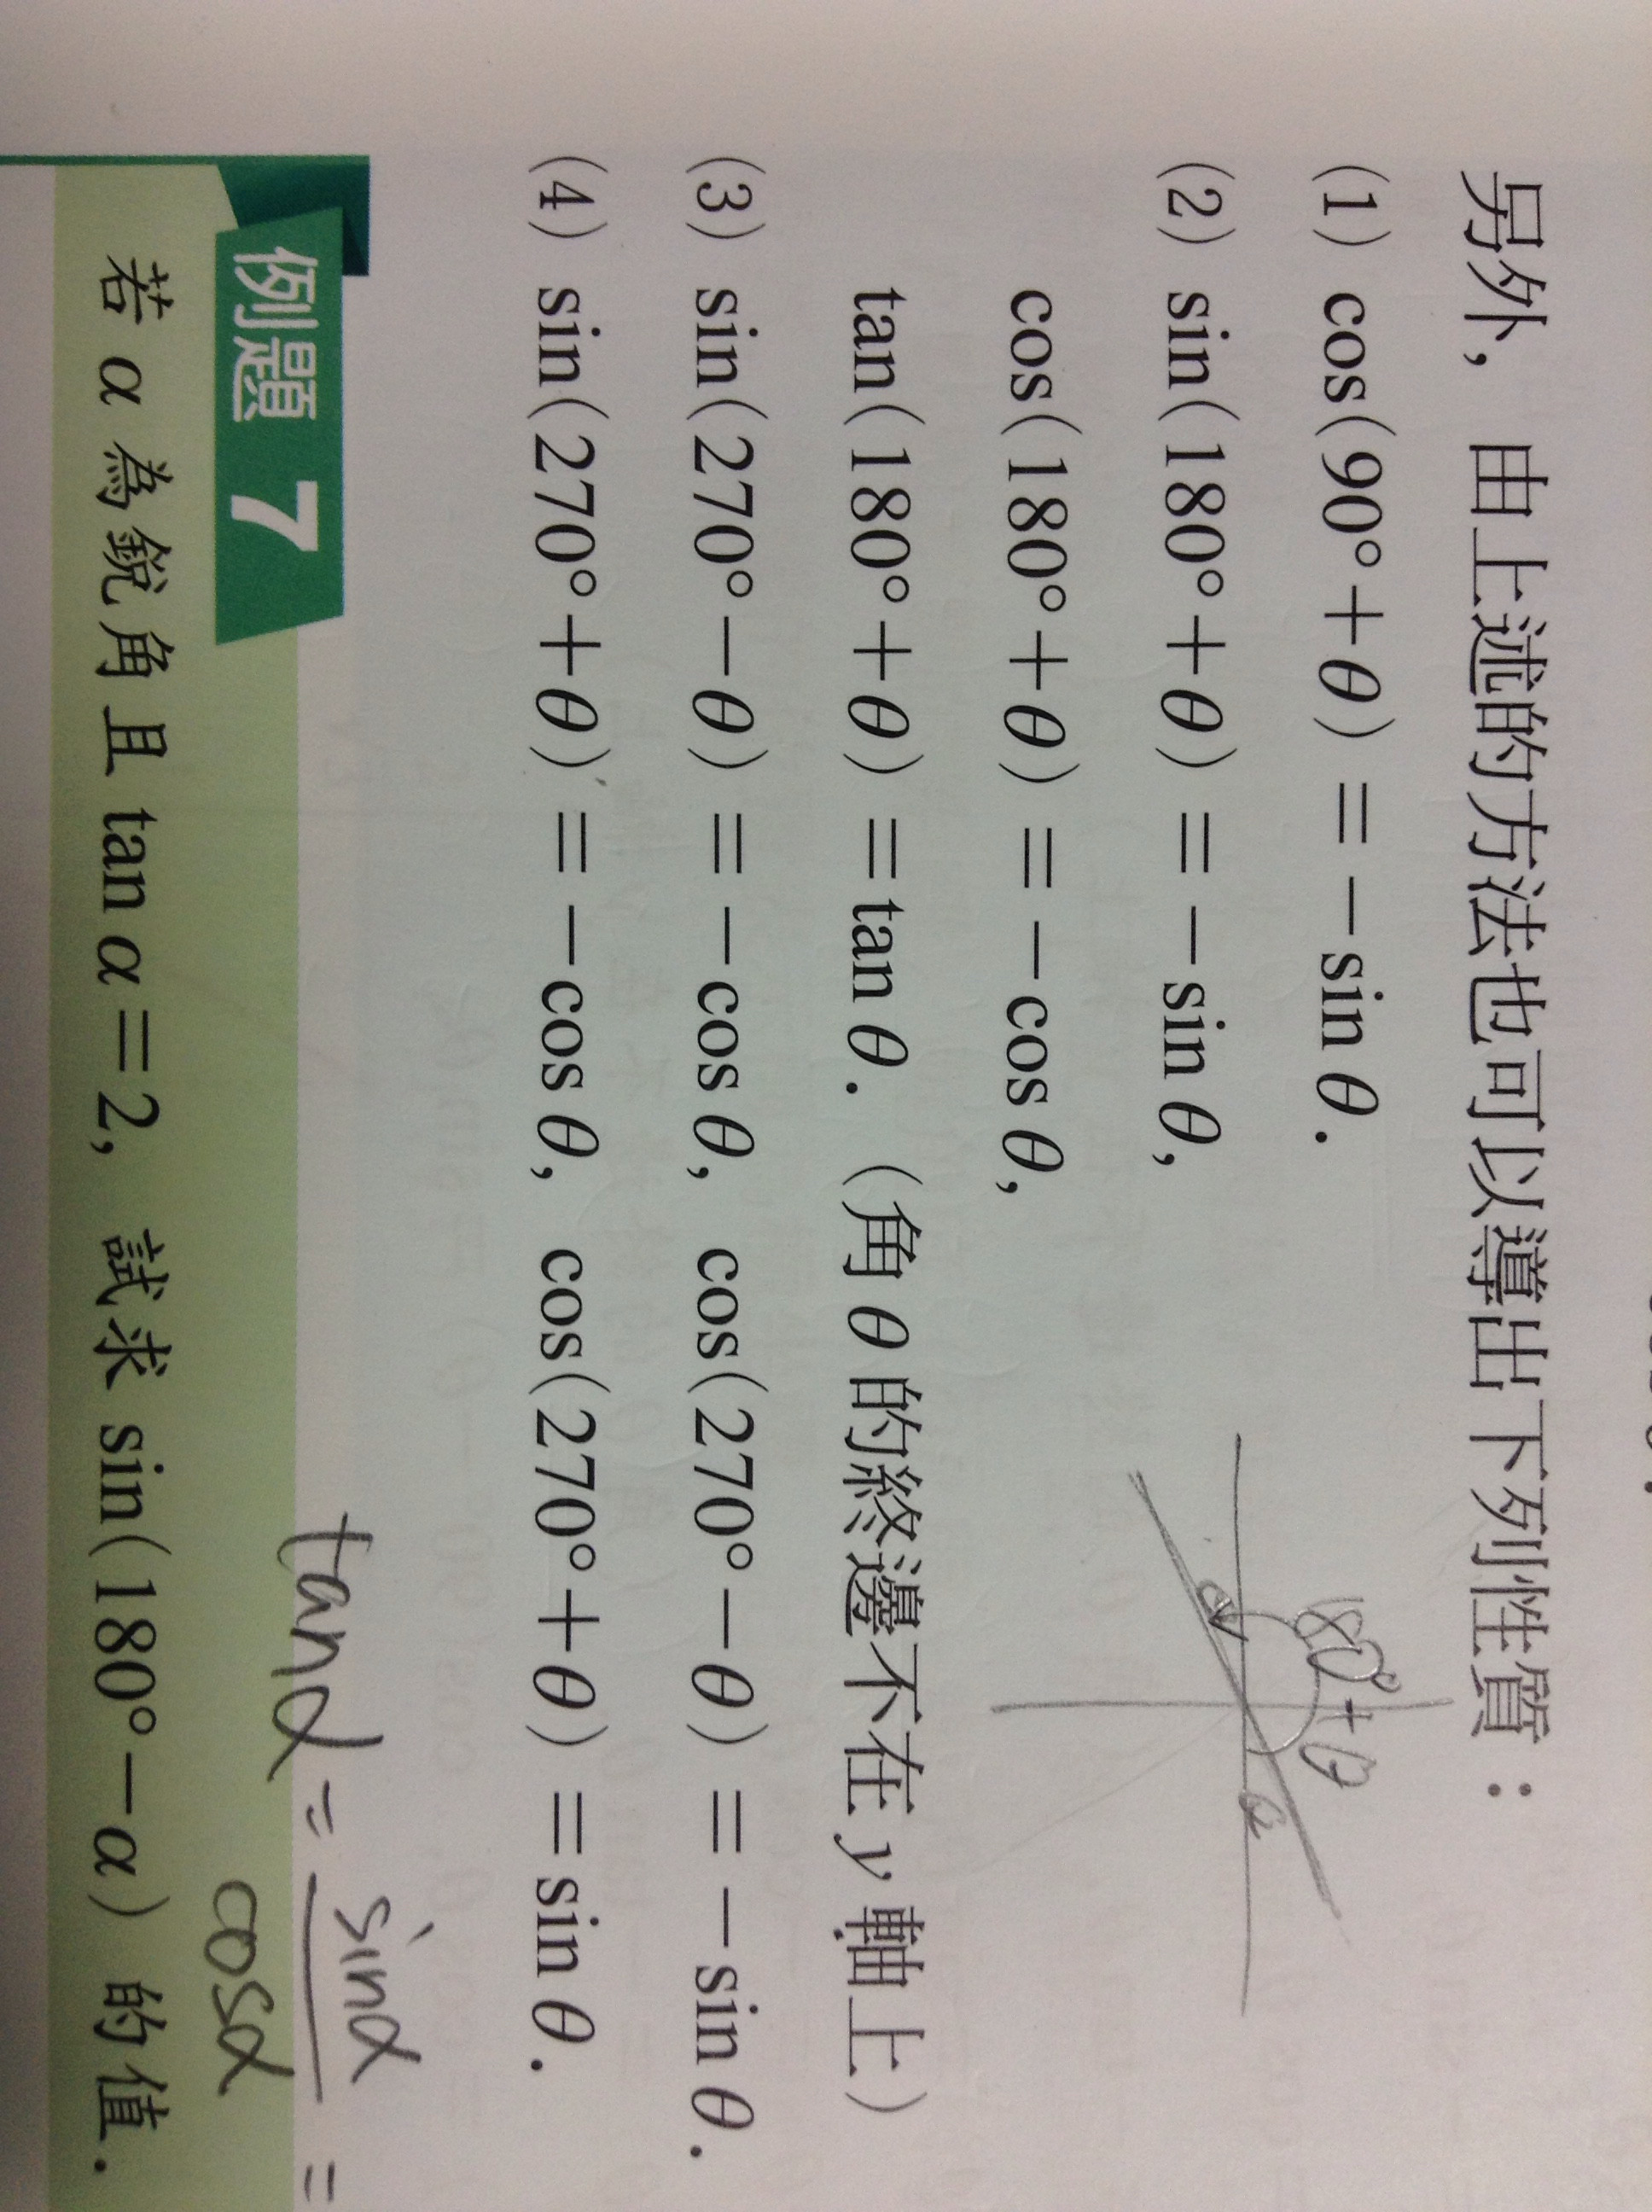 另外，由上述的方法也可以導出下列性質：
(1) cos(90°+θ)=-sin θ.
(2) sin(180°+θ)=-sin θ,
cos(180°+θ)=-cos θ,
180°+θ
θ
θ
tan(180°+θ)=tan θ.（角 θ 的終邊不在 y 軸上）
(3) sin(270°-θ)=-cos θ, cos(270°-θ)=-sin θ.
(4) sin(270°+θ)=-cos θ, cos(270°+θ)=sin θ.
例題 7
tanα = sinα =
cosα
若 α 為銳角且 tan α=2, 試求 sin(180°-α) 的值.